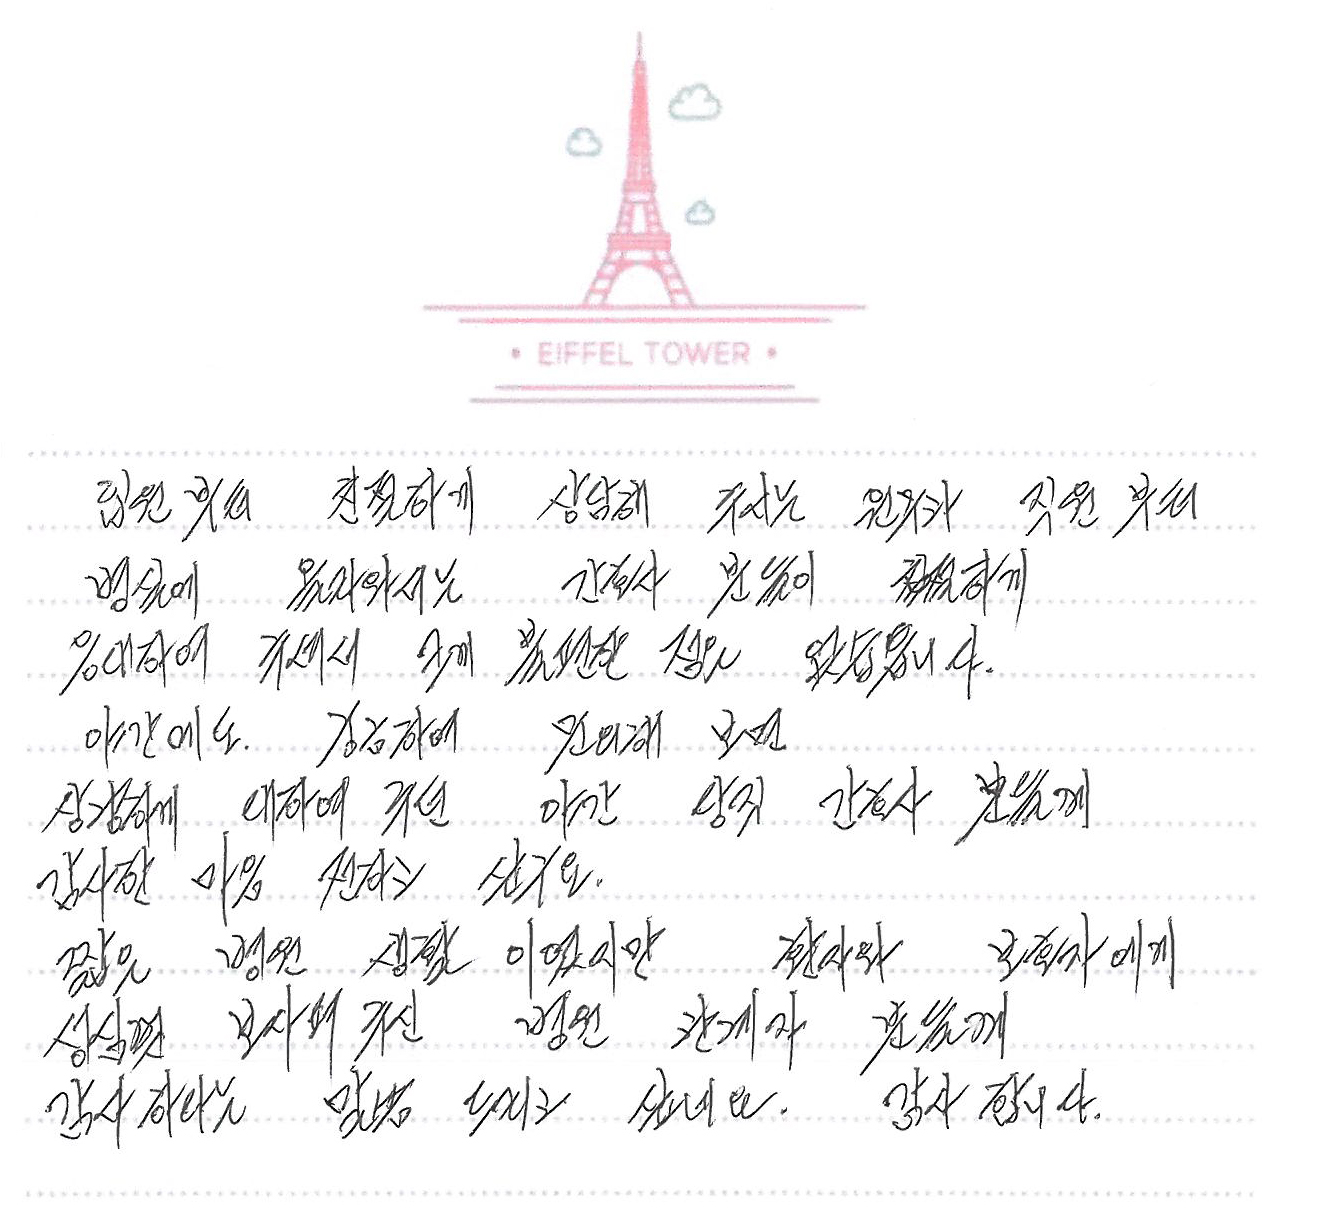 EIFFEL TOWER
입원 부터 친절하게 상담해 주시는 원무과 직원 부터
병실에 간호사 분들이 친절하게
응대하여 주셔서 크게 불편한 점은 없었습니다.
야간에도. 궁금하여 문의해 보면
상감하게 대하여 주신 야간 당직 간호사 분들께
감사한 마음 전하고 싶구요.
짧은 병원 생활 이였지만 환자와 보호자 에게
성심껏 보살펴 주신 병원 관계자 분들께
감사 하다는 말씀 드리고 싶네요. 감사 합니다.